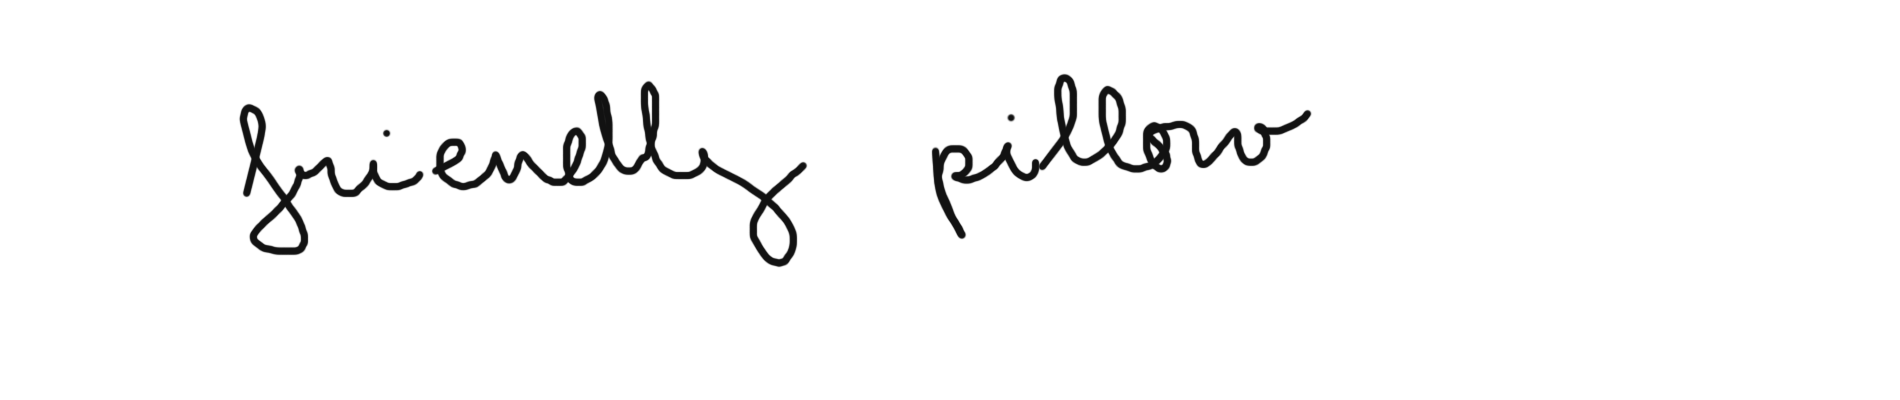 friendly pillow